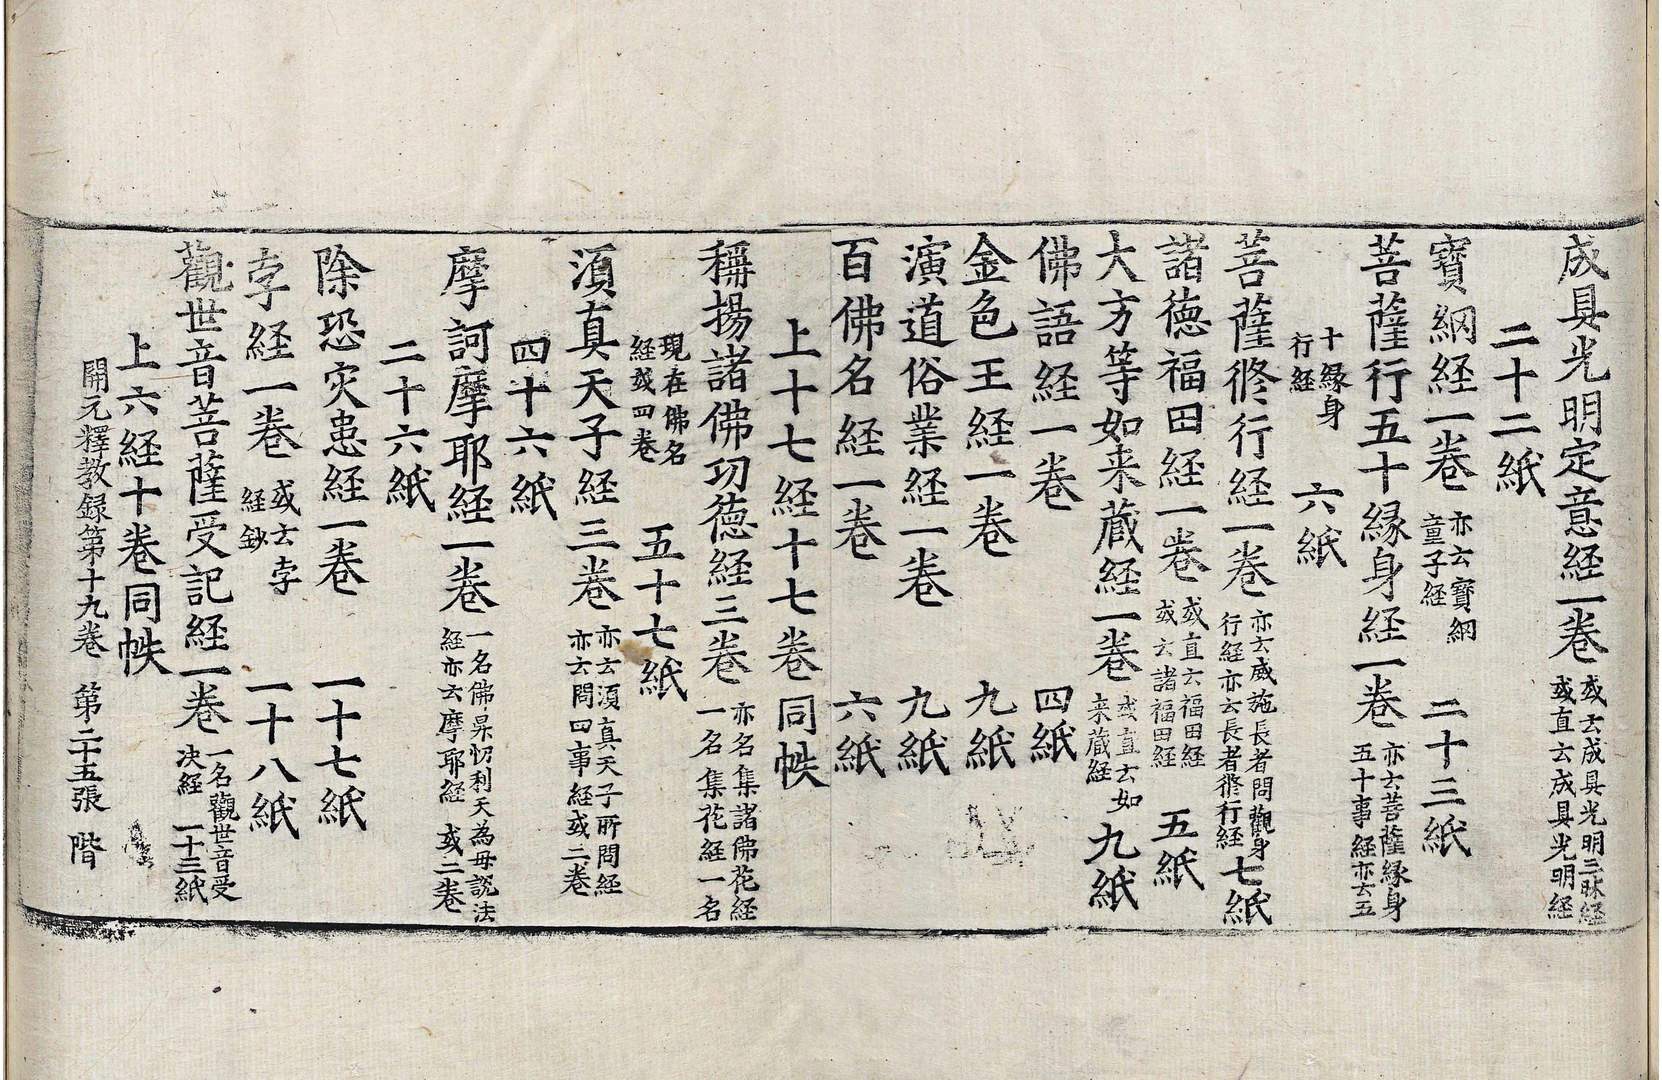 成具光明定意経一卷 或云成具光明三昧経 或直云成具光明経
二十二紙
寶網経一卷 亦云寶網 童子経 二十三紙
菩薩行五十縁身経一卷 亦云菩薩縁身 五十事経亦云五
十縁身 行経 六紙
菩薩修行経一卷 亦云威施長者問觀身 行経亦云長者修行経 七紙
諸德福田経一卷 或直云福田経 或云諸福田経 五紙
大方等如来蔵経一卷 或直云如 来蔵経 九紙
佛語経一卷 四紙
金色王経一卷 九紙
演道俗業経一卷 九紙
百佛名経一卷 六紙
上十七経十七卷同帙
稱揚諸佛功德経三卷 亦名集諸佛花経 一名集花経一名
現在佛名 経或四卷 五十七紙
湏真天子経三卷 亦云湏真天子所問経 亦云問四事経或二卷
四十六紙
摩訶摩耶経一卷 一名佛昇忉利天為母說法 経亦云摩耶経 或二卷
二十六紙
除恐灾患経一卷 一十七紙
孛経一卷 或云孛 経鈔 一十八紙
觀世音菩薩受記経一卷 一名觀世音受 決経 一十三紙
上六経十卷同帙
開元釋教録第十九卷 第二十五張 階